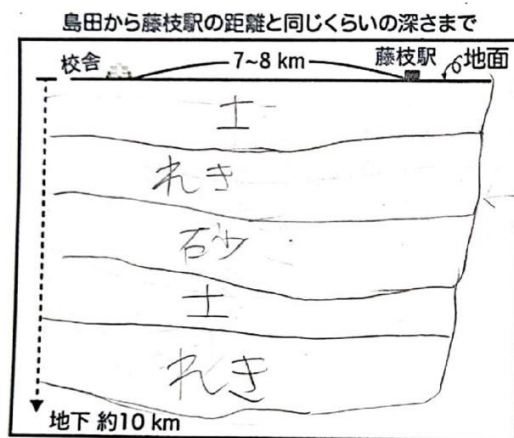 島田から藤枝駅の距離と同じくらいの深さまで
校舎 7~8 km 藤枝駅 地面
土
れき
砂
土
れき
地下 約10 km